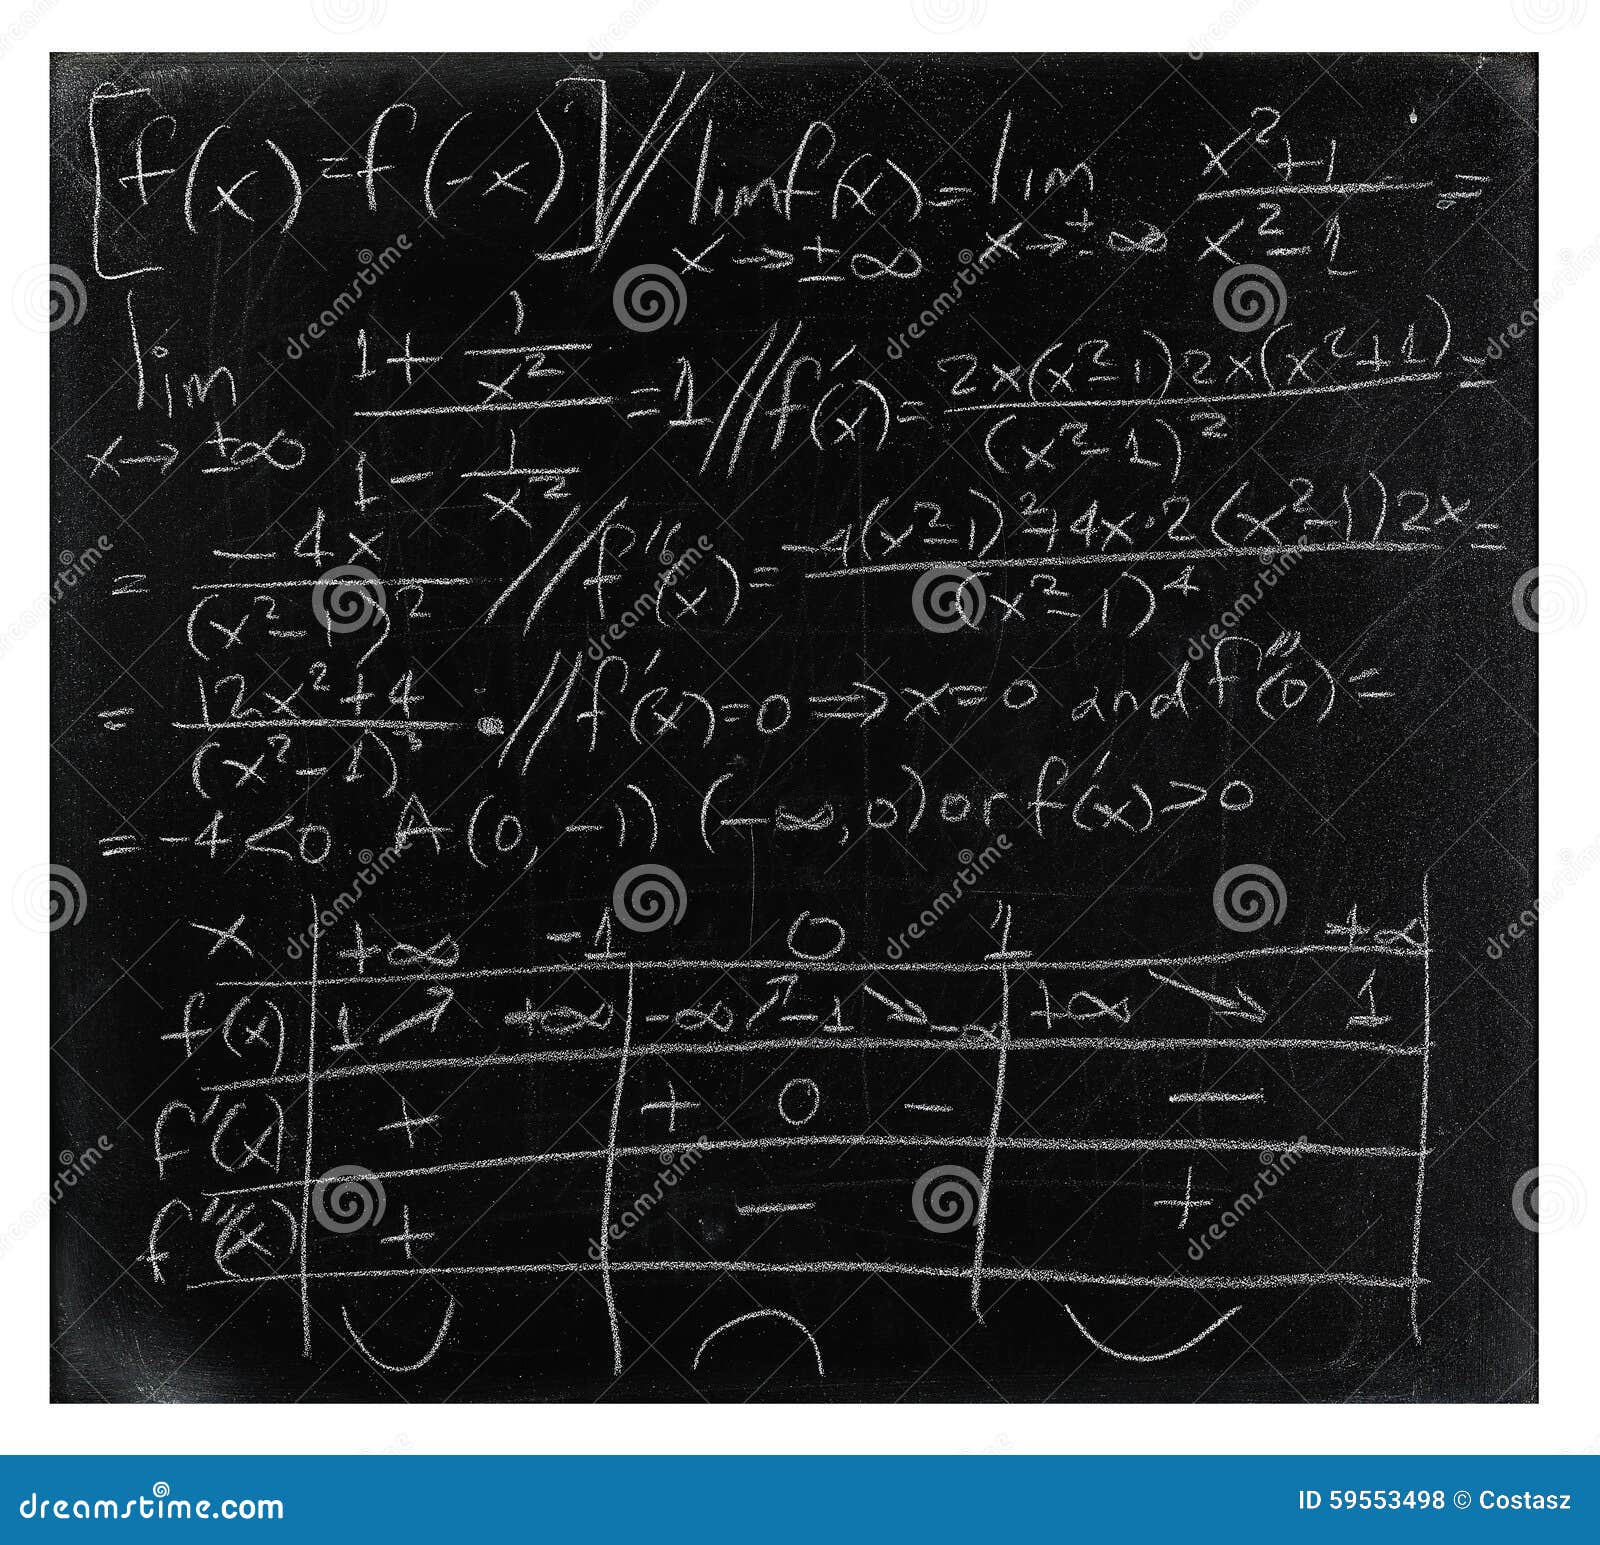 [f(x)=f(-x)] // lim f(x) = lim x²+1 / x²-1 =
x→±∞ x→±∞
lim 1+ 1/x² / 1- 1/x² =1 // f'(x)= 2x(x²-1)2x(x²+1) / (x²-1)² =
x→±∞
= -4x / (x²-1)² // f''(x)= -4(x²-1)²+4x·2(x²-1)2x / (x²-1)⁴ =
= 12x²+4 / (x²-1)³ · // f'(x)=0 ⇒ x=0 and f''(0)=
= -4<0 A(0,-1) (-∞,0) or f'(x)>0
x +∞ -1 0 1 +∞
f(x) 1 ↗ +∞ -∞ ↗ -1 ↘ -∞ +∞ ↘ 1
f'(x) + + 0 - -
f''(x) + - +
dreamstime.com
ID 59553498 © Costasz